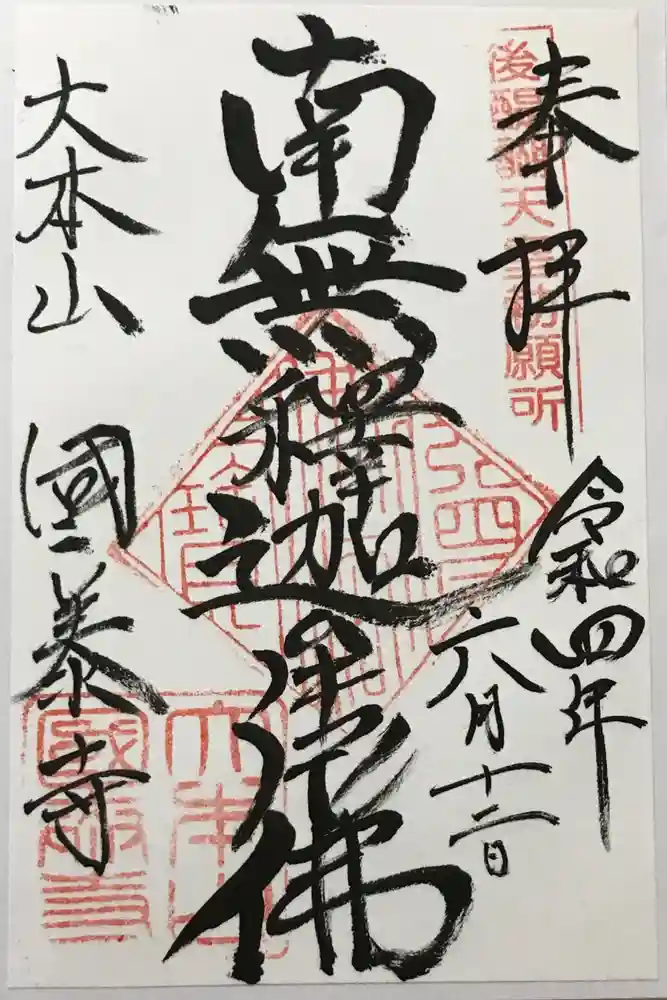 後醍醐天皇勅願所
奉拝
令和四年
六月十二日
南無釋迦牟尼佛
大本山 國泰寺
大本山
國泰寺